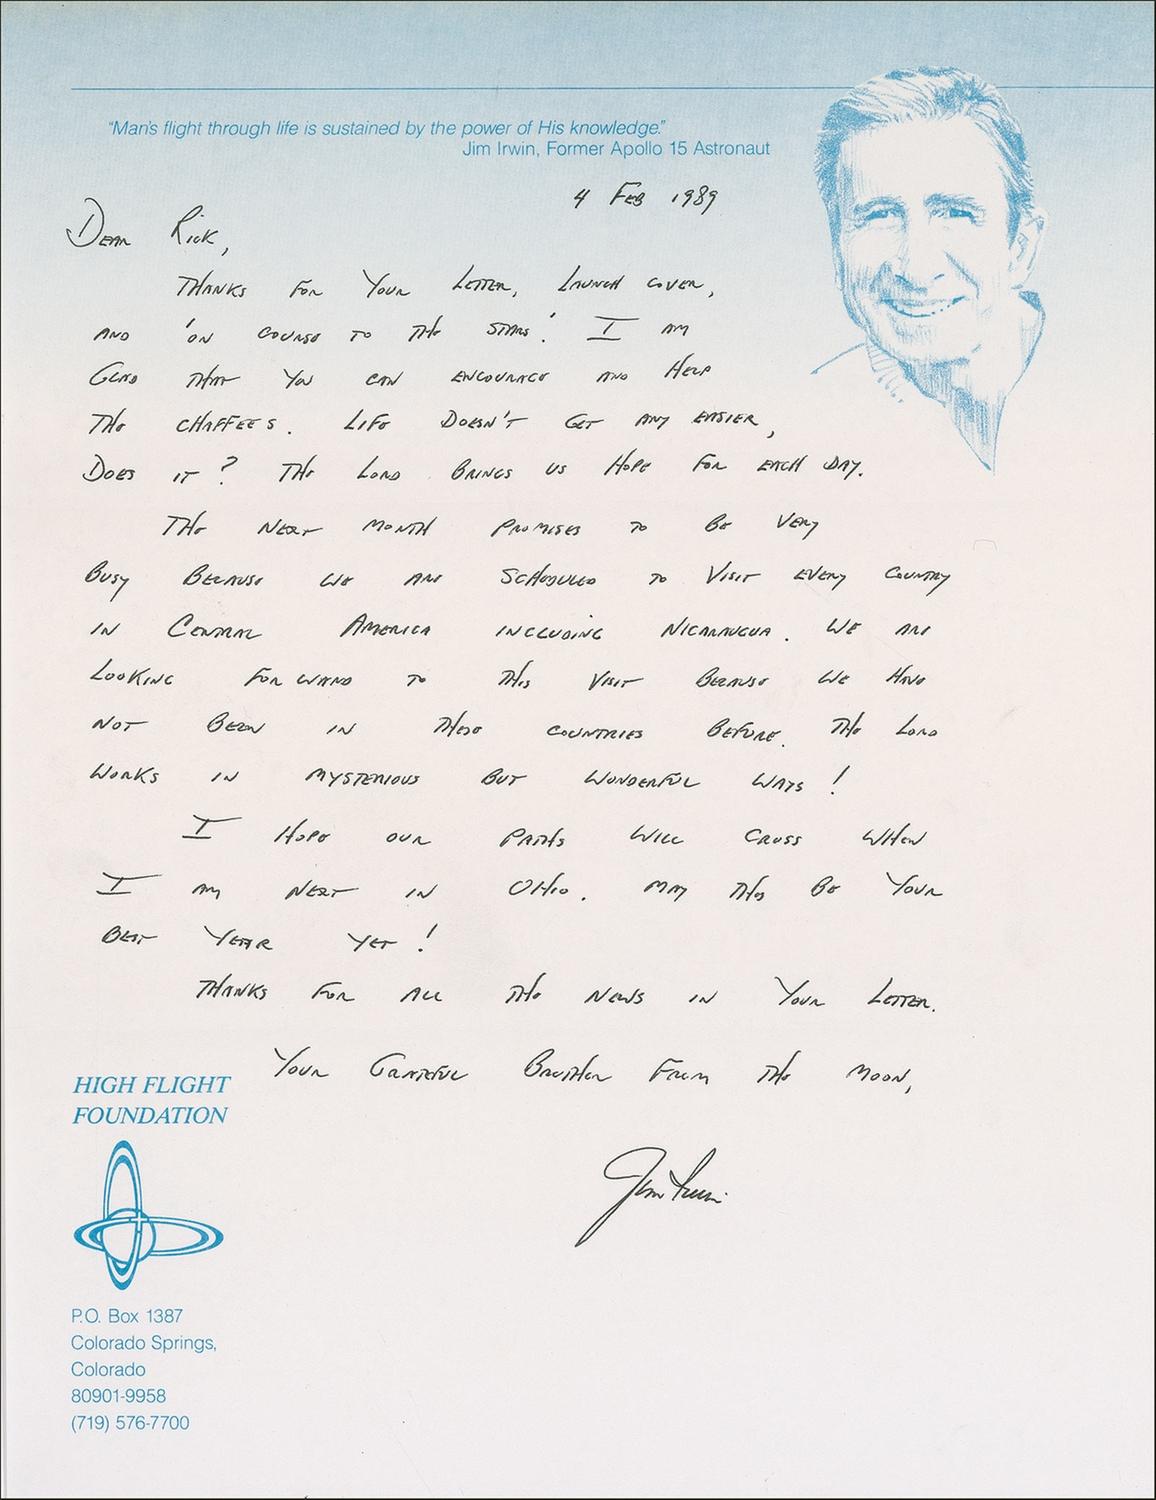 "Man's flight through life is sustained by the power of His knowledge."
Jim Irwin, Former Apollo 15 Astronaut
4 FEB 1989
DEAR RICK,
THANKS FOR YOUR LETTER, LAUNCH COVER,
AND 'ON COURSE TO THE STARS'. I AM
GLAD THAT YOU CAN ENCOURAGE AND HELP
THE CHAFFEES. LIFE DOESN'T GET ANY EASIER,
DOES IT? THE LORD BRINGS US HOPE FOR EACH DAY.
THE NEXT MONTH PROMISES TO BE VERY
BUSY BECAUSE WE ARE SCHEDULED TO VISIT EVERY COUNTRY
IN CENTRAL AMERICA INCLUDING NICARAUGUA. WE ARE
LOOKING FORWARD TO THIS VISIT BECAUSE WE HAVE
NOT BEEN IN THESE COUNTRIES BEFORE. THE LORD
WORKS IN MYSTERIOUS BUT WONDERFUL WAYS!
I HOPE OUR PATHS WILL CROSS WHEN
I AM NEXT IN OHIO. MAY THIS BE YOUR
BEST YEAR YET!
THANKS FOR ALL THE NEWS IN YOUR LETTER.
YOUR GRATEFUL BROTHER FROM THE MOON,
Jim Irwin
HIGH FLIGHT
FOUNDATION
P.O. Box 1387
Colorado Springs,
Colorado
80901-9958
(719) 576-7700